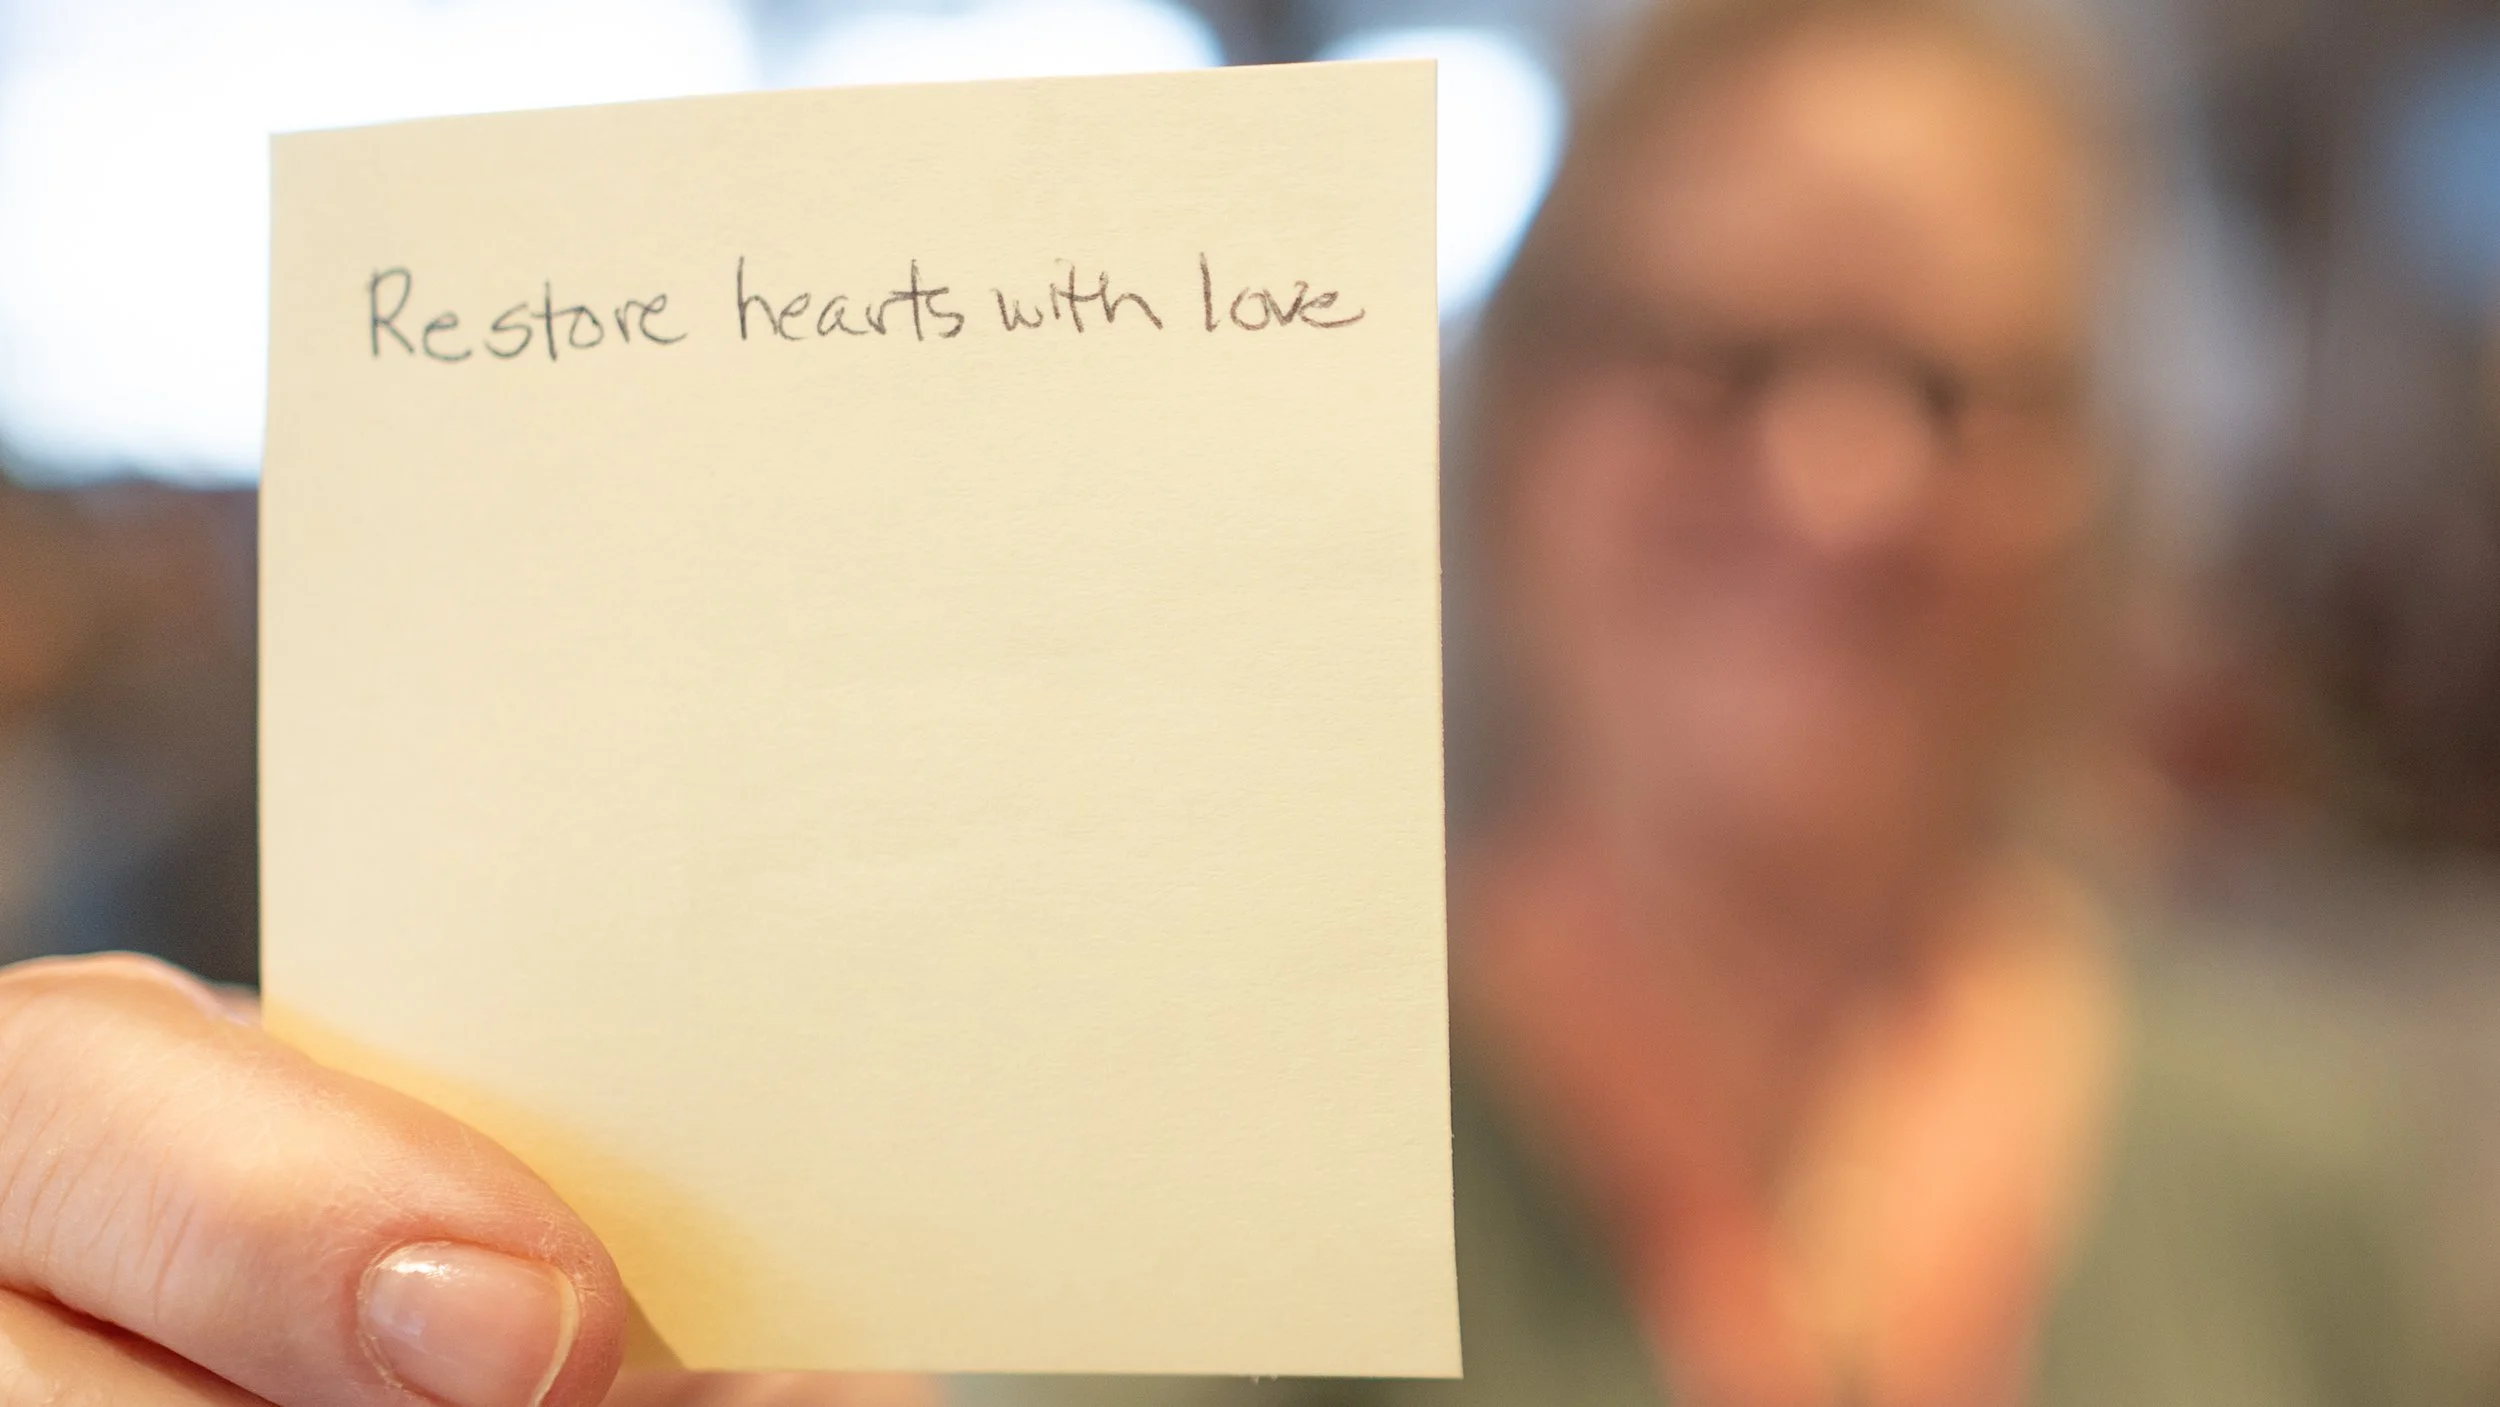 Restore hearts with love